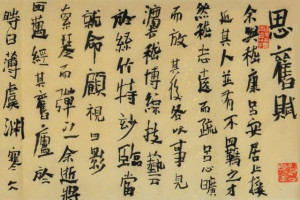 思舊賦
余與嵇康呂安居止接
近其人並有不羈之才
然嵇志遠而疏呂心曠
而放其後各以事見
法嵇博綜技藝
於絲竹特妙臨當
就命顧視日影
索琴而彈之余逝將
西邁經其舊廬於
時日薄虞淵寒